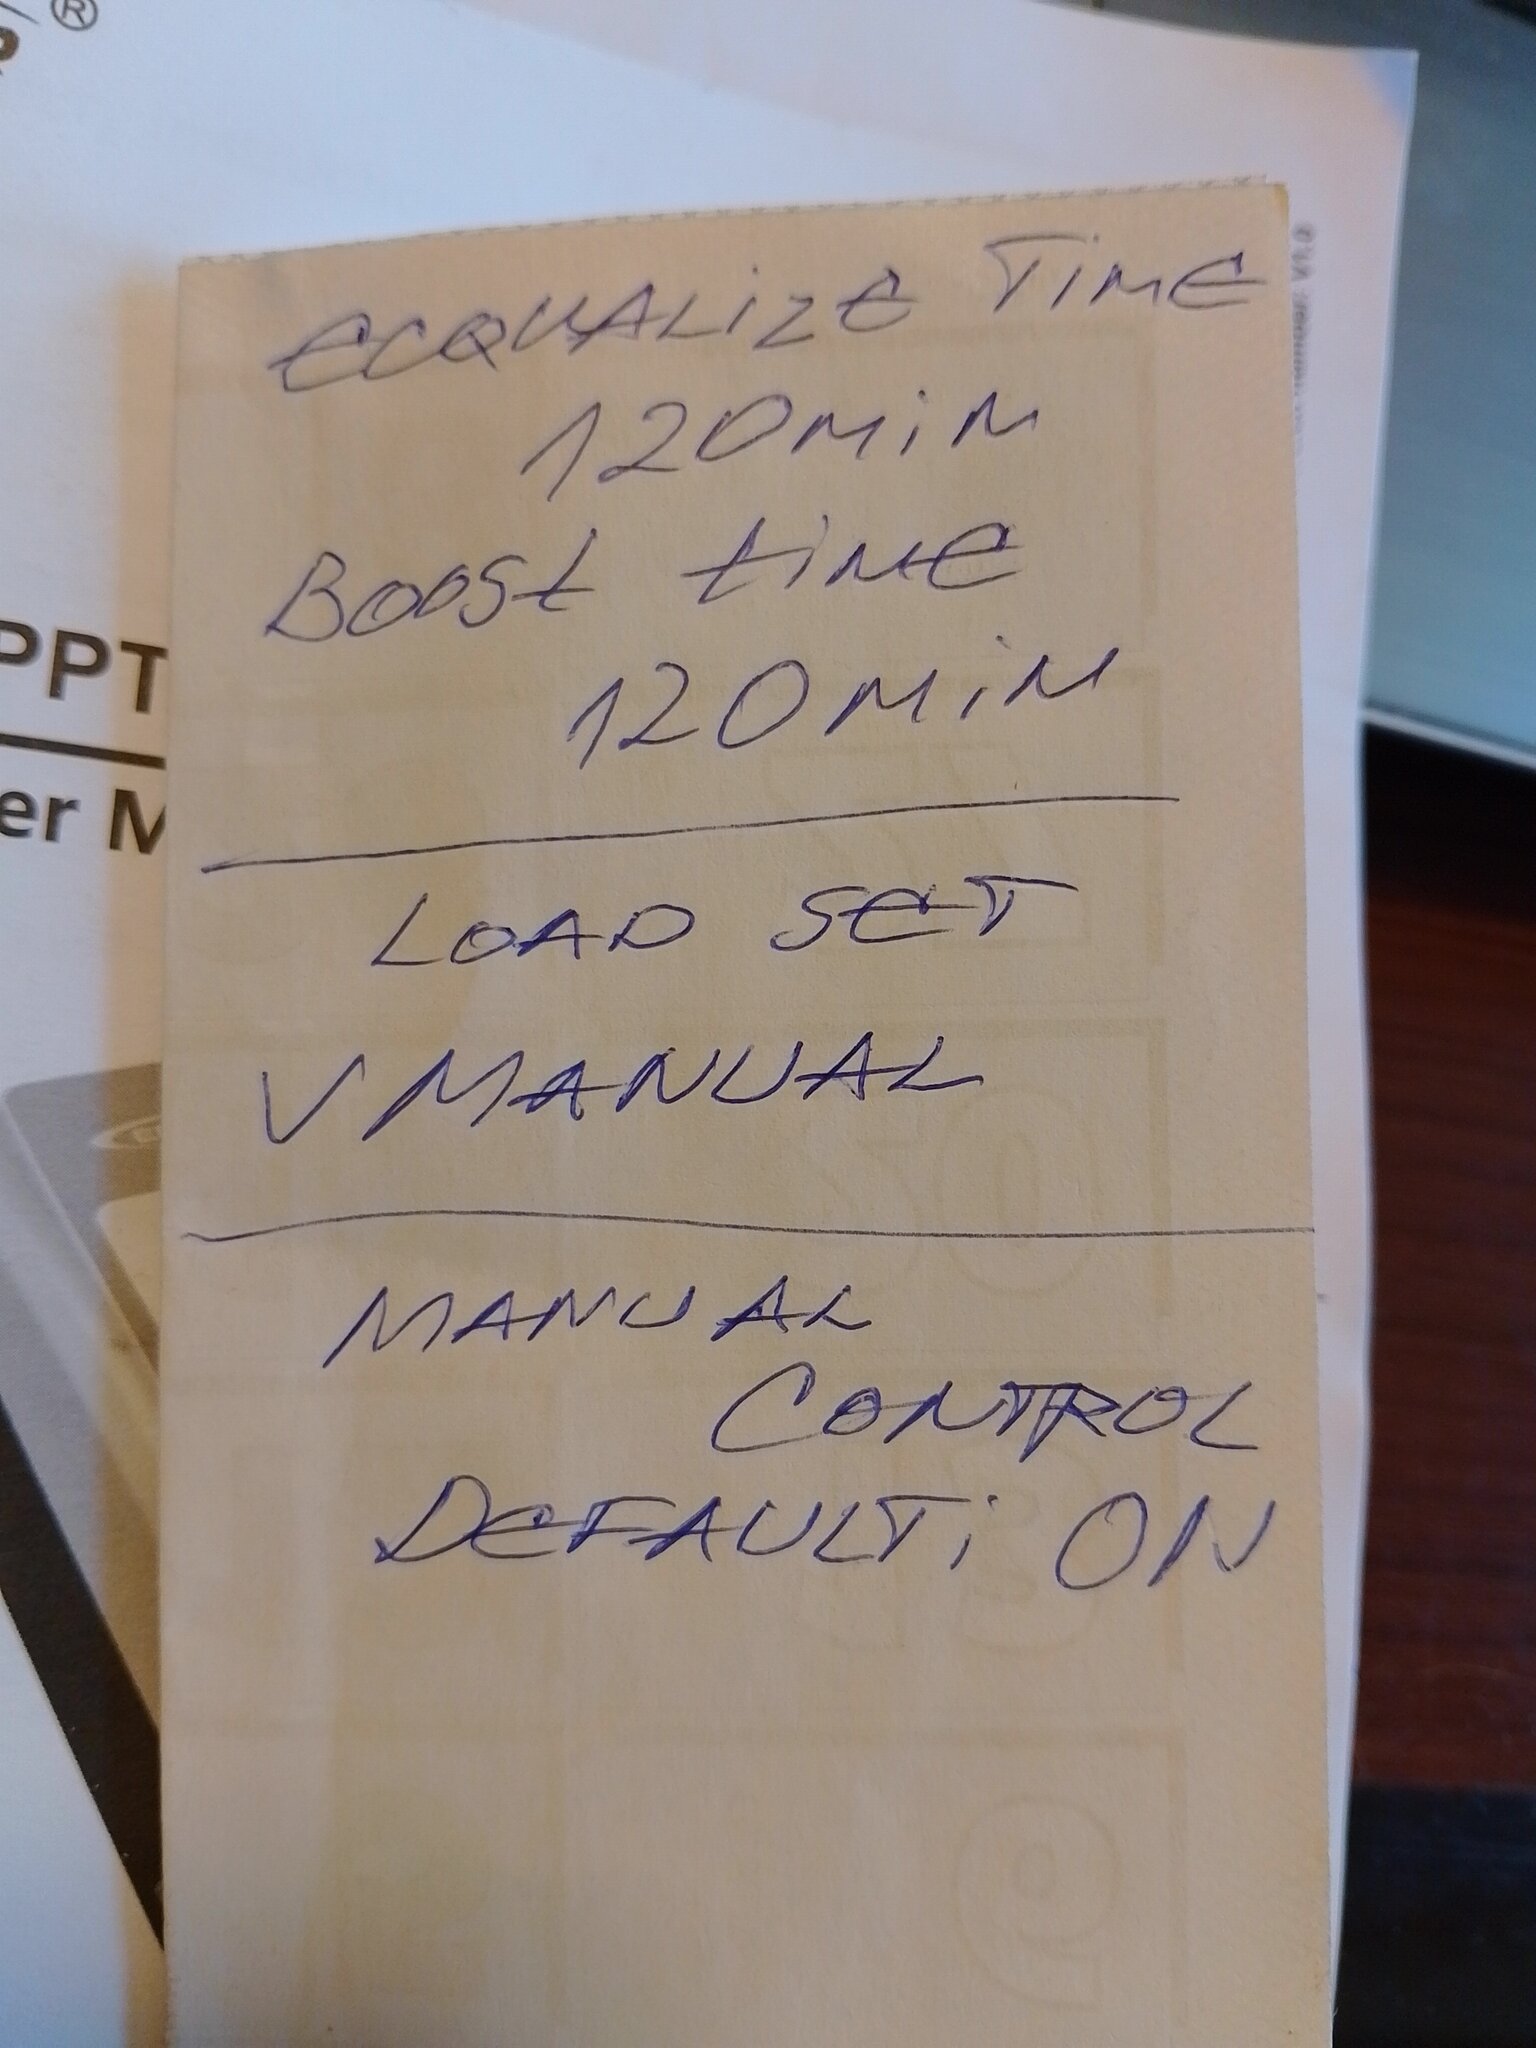 ®
ECQUALIZE TIME
120MIN
BOOST TIME
120MIN
PPT
er M
LOAD SET
V MANUAL
MANUAL
CONTROL
DEFAULTi ON